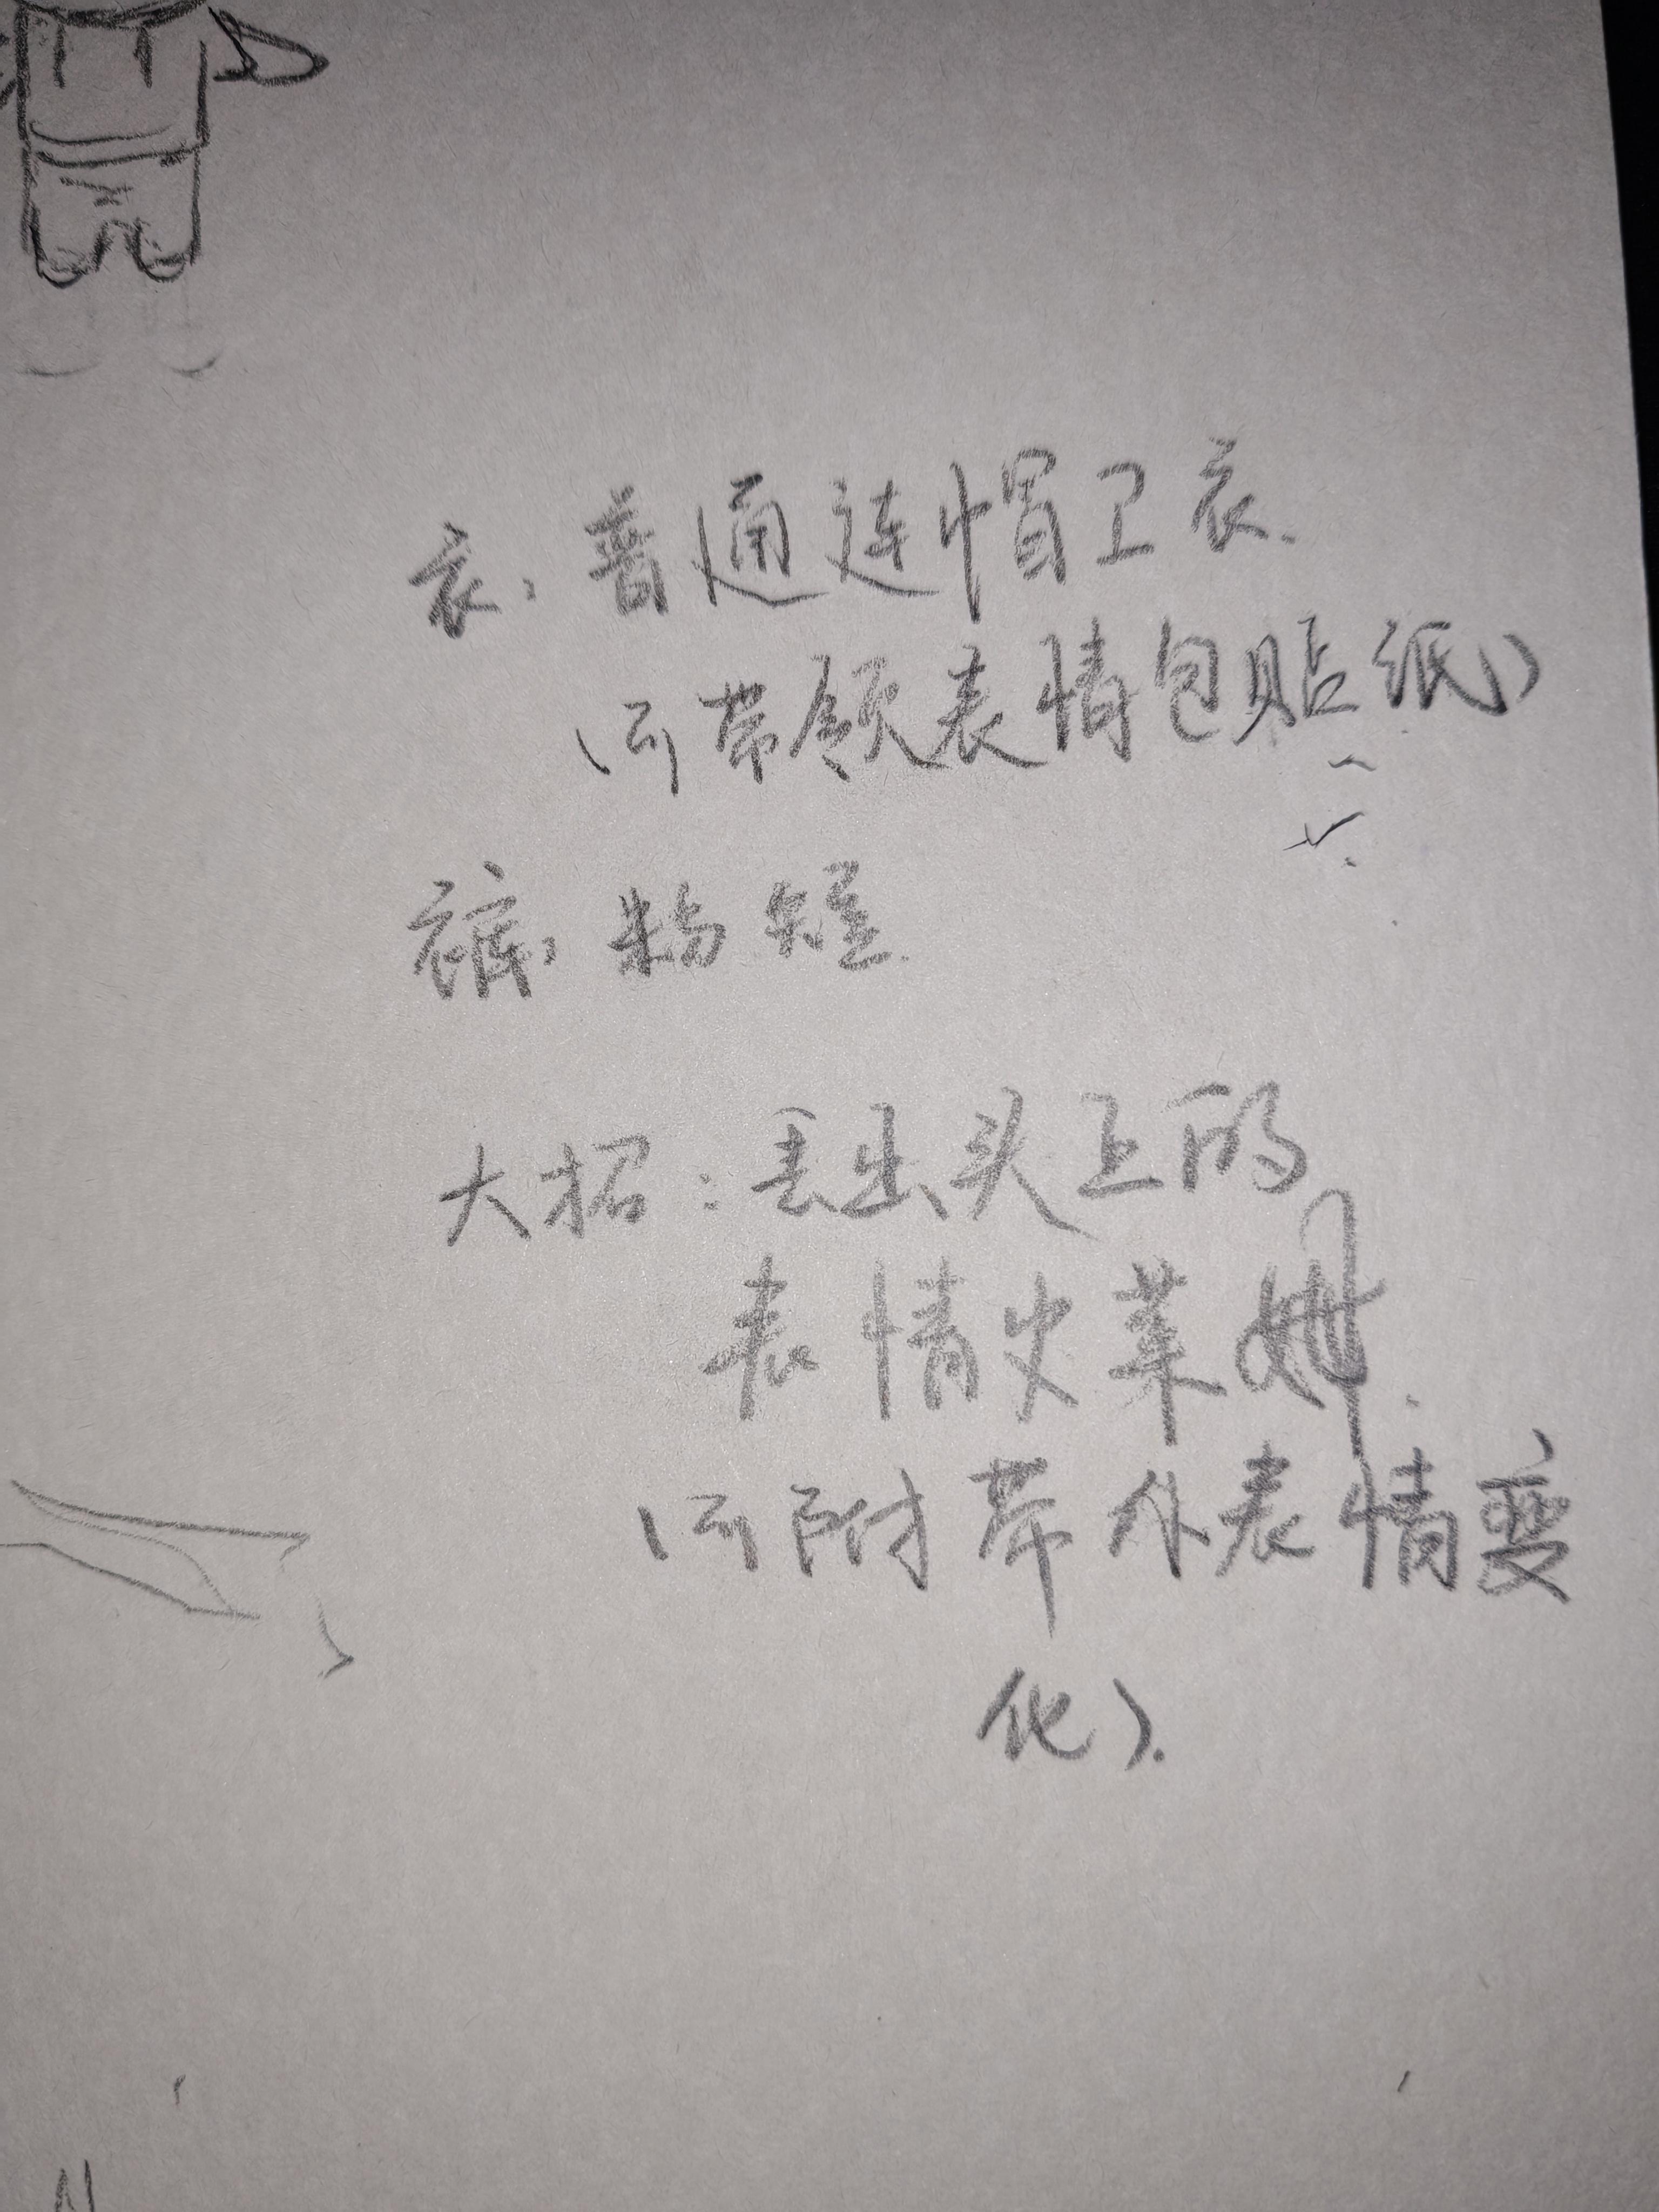 衣:普通连帽卫衣.
(可带领表情包贴纸)
裤:粉短.
大招:丢出头上的
表情史莱姆.
(可附带外表情变
化).